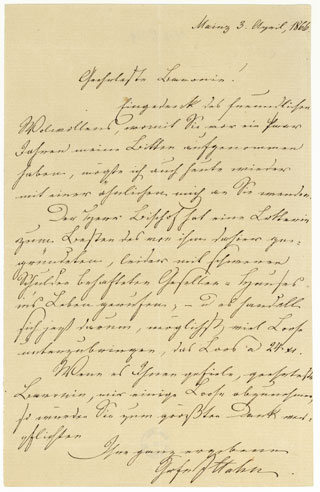 Mainz 3. April, 1866
Geehrteste Baronin!
Eingedenk des freundlichen
Wolwollens, womit Sie vor ein paar
Jahren meine Bitten aufgenommen
haben, mögte ich auch heute wieder
mit einer ähnlichen mich an Sie wenden.
Der Herr Bischof hat eine Lotterie
zum Besten des von ihm dahier ge-
gründeten, leider mit schweren
Schulden behafteten Gesellen-Hauses
in's Leben gerufen, – u es handelt
sich jezt darum, möglichst viel Loose
unterzubringen, das Loos a 24 xr.
Wenn es Ihnen gefiele, geehrteste
Baronin, mir einige Loose abzunehmen,
so würden Sie zum größten Dank ver-
pflichten
Ihre ganz ergebene
Hahn.